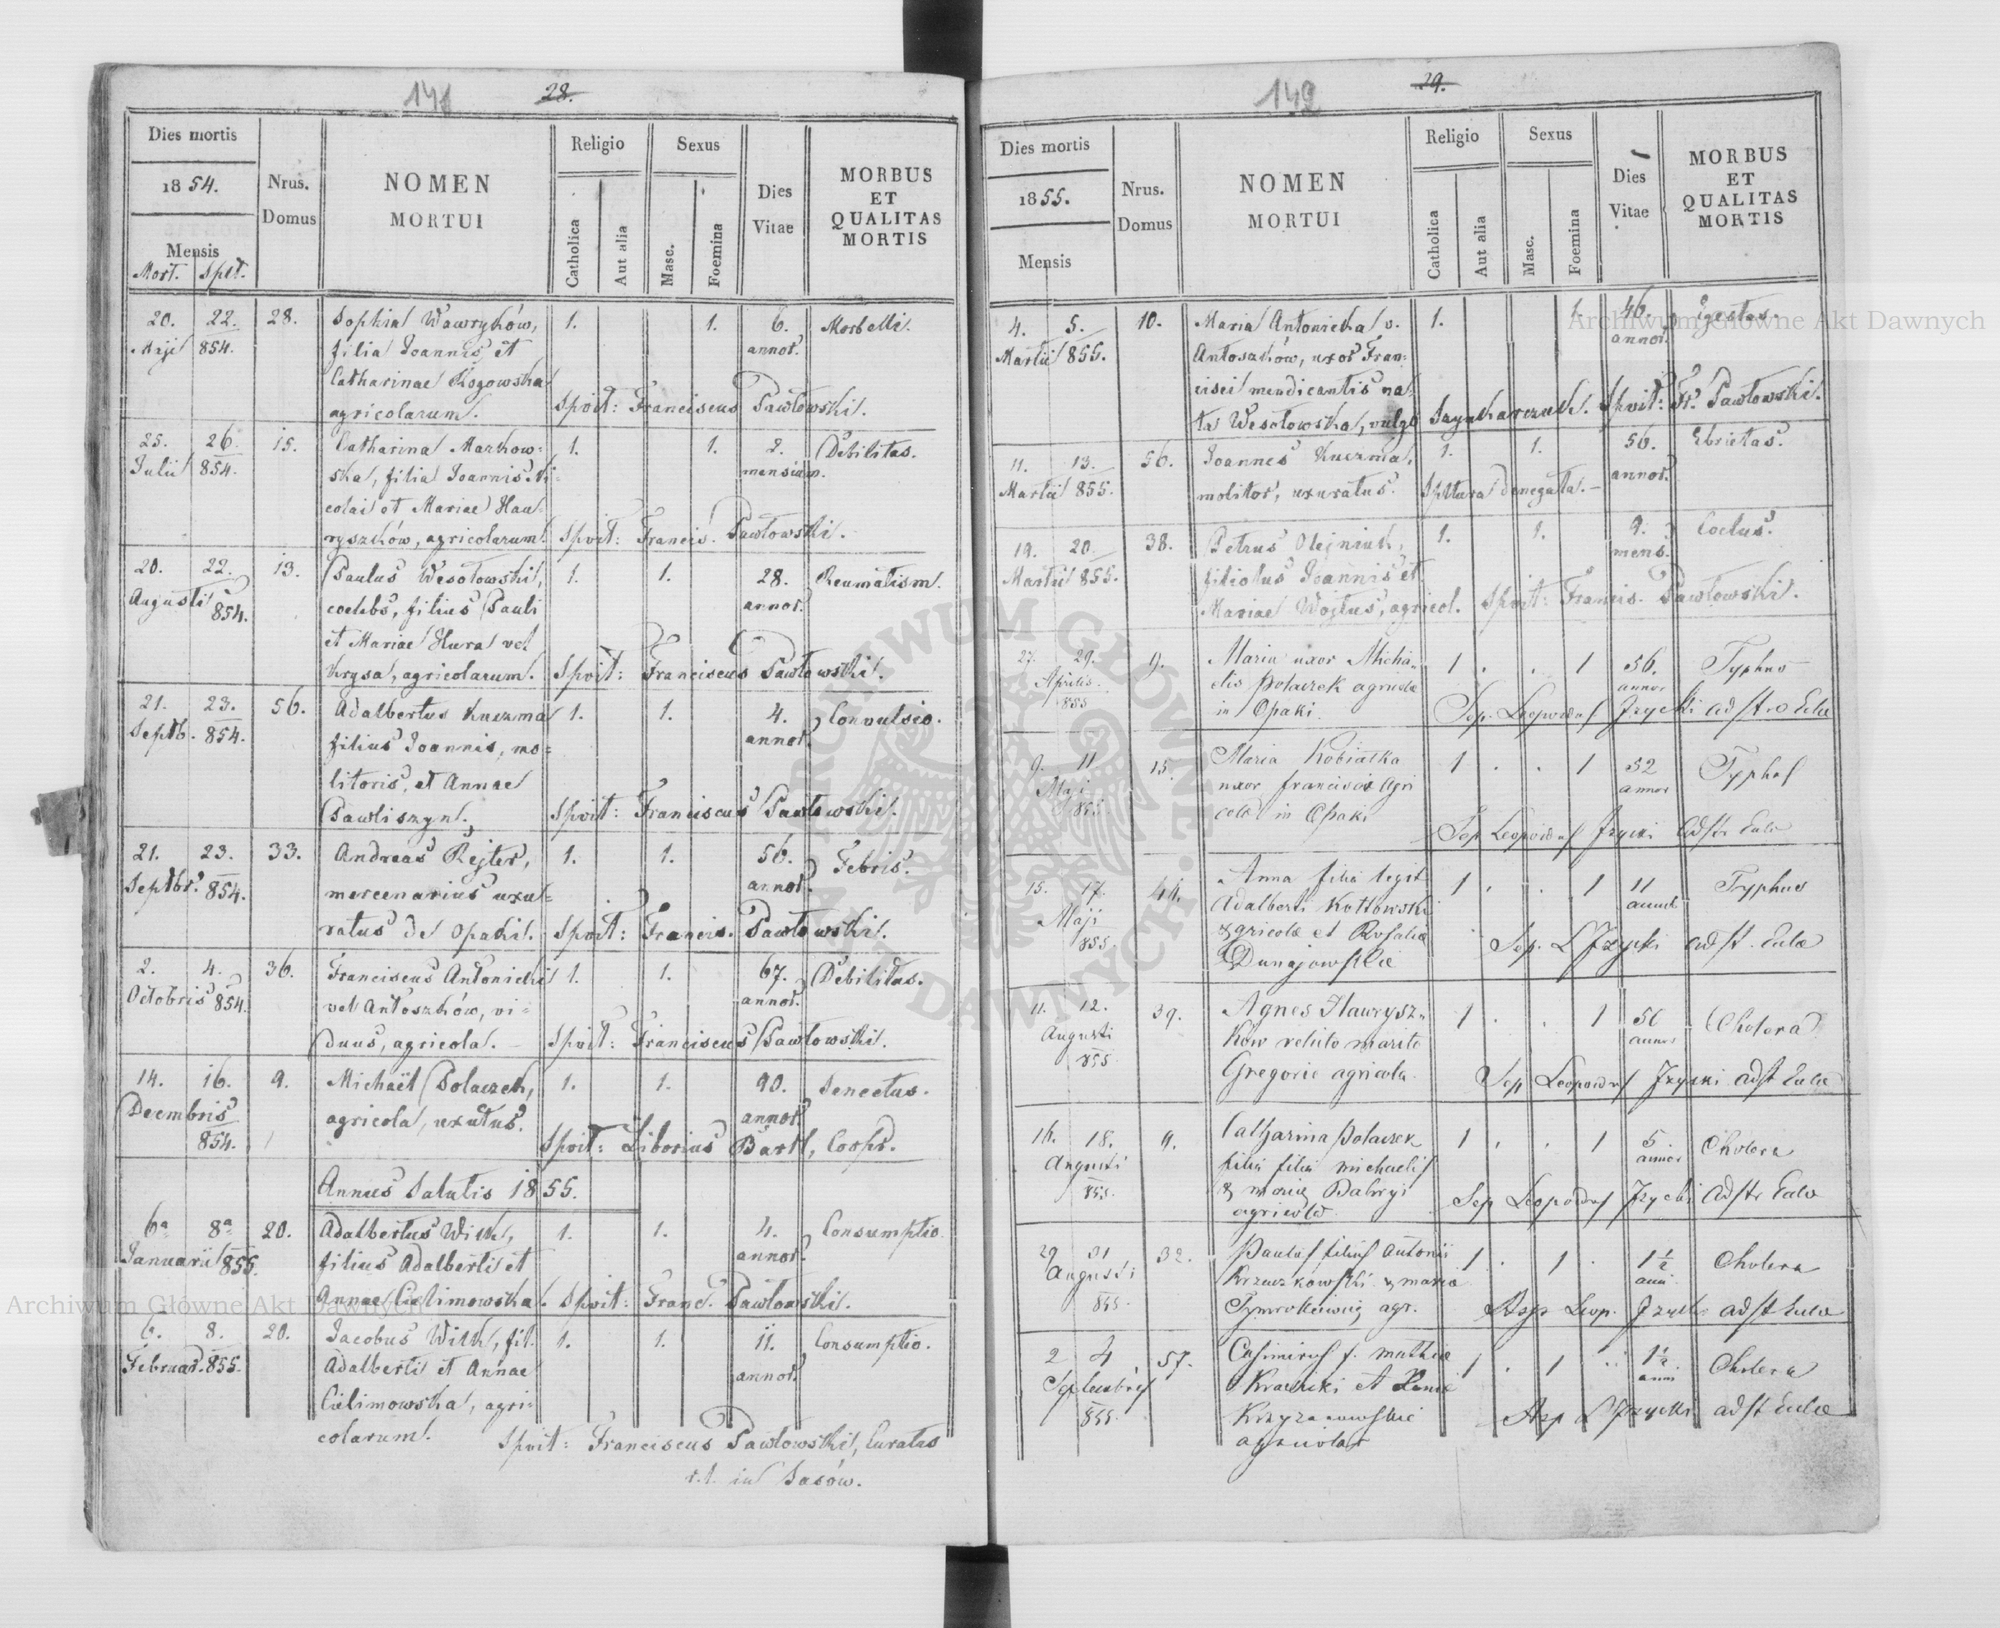 148 28.
Dies mortis
1854.
Mensis
Mort. Splt.
Nrus.
Domus
NOMEN
MORTUI
Religio
Catholica
Aut alia
Sexus
Masc.
Foemina
Dies
Vitae
MORBUS
ET
QUALITAS
MORTIS
20. 22. 28. Sophia Wawryków, 1. 1. 6. Morbilli.
Maji 854. filia Joannis et annor.
Catharinae Rogowska
agricolarum. Spvit: Franciscus Pawłowski.
25. 26. 15. Catharina Markow= 1. 1. 2. Debilitas.
Julii 854. ska, filia Joannis Ni= mensium.
colai et Mariae Hau
ryszków, agricolarum. Spvit: Francis. Pawłowski.
20. 22. 13. Paulus Wesołowski, 1. 1. 28. Reumatism.
Augusti 854. coelebs, filius Pauli annor.
et Mariae Hura vel
Krysa, agricolarum. Spvit: Franciscus Pawłowski.
21. 23. 56. Adalbertus Kuczma 1. 1. 4. Convulsio.
Septb. 854. filius Joannis, mo= annor.
litoris, et Annae
Pawliszyn. Spvit: Franciscus Pawłowski.
21. 23. 33. Andreas Rejter, 1. 1. 56. Febris.
Septbr. 854. mercenarius uxu= annor.
ratus de Opaki. Spvit: Francis. Pawłowski.
2. 4. 36. Franciscus Antonicki 1. 1. 67. Debilitas.
Octobris 854. vel Antoszków, vi= annor.
duus, agricola. — Spvit: Franciscus Pawłowski.
14. 16. 9. Michaël Polaczek, 1. 1. 90. Senectus.
Decembris 854. agricola, uxutus. annor.
Spvit: Liborius Bartl, Coopr.
Annus Salutis 1855.
6a 8a 20. Adalbertus With, 1. 1. 4. Consumptio
Januarii 855. filius Adalberti et annor.
Annae Cielimowska. Spvit: Franc. Pawłowski.
6. 8. 20. Jacobus With, fil. 1. 1. 11. Consumptio.
Februar. 855. Adalberti et Annae annor.
Cielimowska, agri=
colarum. Spvit: Franciscus Pawłowski, Curatus
r.l. in Sasów.
149 29.
Dies mortis
1855.
Mensis
Nrus.
Domus
NOMEN
MORTUI
Religio
Catholica
Aut alia
Sexus
Masc.
Foemina
Dies
Vitae
MORBUS
ET
QUALITAS
MORTIS
4. 5. 10. Maria Antonicka v. 1. 1. 46. Egestas.
Martii 855. Antoszków, uxor Fran= annor.
cisci mendicantis na=
ta Wesołowska, vulgo Szynkarczuk. Spvit: Fr. Pawłowski.
11. 13. 56. Joannes Kuczma, 1. 1. 56. Ebrietas.
Martii 855. molitor, uxuratus. Spltura denegata. — annor.
19. 20. 38. Petrus Olejniuk, 1. 1. 9. Coelus.
Martii 855. filiolus Joannis et mens.
Mariae Wojtus, agricol. Spvit: Francis. Pawłowski.
27. 29. 9. Maria uxor Micha= 1 . . 1 56. Typhus
Aprilis 855 elis Polaczek agricolae annor
in Opaki. Sep. Leopoldus Jzycki adst Eulae
9. 11 15. Maria Kobiałka 1 . . 1 52 Typhus
Maji 855. uxor francisci agri annor
colae in Opaki Sep Leopoldus Jzycki adstr Eulae
15. 17. 44. Anna filia legit 1 . . 1 11 Typhus
Maji 855. Adalberti Kotłowski annor
agricolae et Rosaliae Sep. L Jzycki adst. Eulae
Dunajowskie
11. 12. 39. Agnes Hawrysz= 1 . . 1 50 Cholera
Augusti 855 ków relicto marito annor
Gregorio agricola. Sep Leopoldus Jzycki adst Eulae
16. 18. 9. Catharina Polaczek 1 . . 1 5. Cholera
Augusti 855. filia michaelis annor
& maria
agricolae Sep Leopoldus Jzycki adstr Eulae
29 31 32. Paulus filius Antonii 1 . 1 . 1½ Cholera
Augusti 855. Krzuczkowski & maria anni
agr. Asp Leop. Jzycki adst Eulae
2 4 57. Casimirus f. mathiae 1 . 1 1½ Cholera
Septembris 855. Krasicki et anni
Krzyzanowskie Asp L Jzycki adst Eulae
Archiwum Główne Akt Dawnych
Archiwum Główne Akt Dawnych
ARCHIWUM GŁÓWNE AKT DAWNYCH